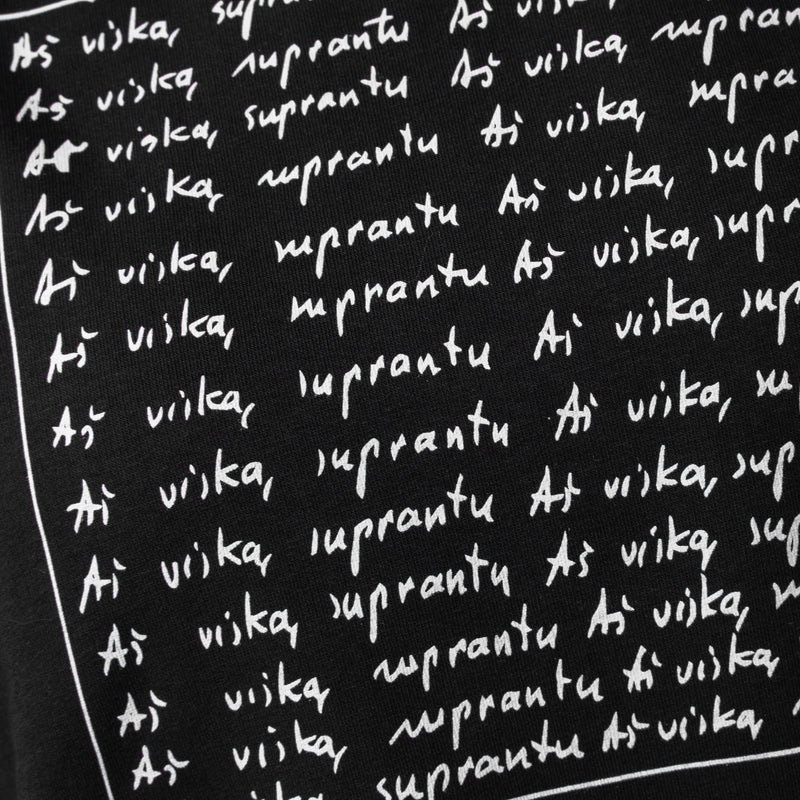 Aš viską
Aš viską suprantu Aš
Aš viską suprantu Aš viską supran
Aš viską suprantu Aš viską supra
Aš viską suprantu Aš viską supr
Aš viską suprantu Aš viską supr
Aš viską suprantu Aš viską sup
Aš viską suprantu Aš viską su
Aš viską suprantu Aš viską sup
Aš viską suprantu Aš viską sup
Aš viską suprantu Aš viską
Aš viską suprantu Aš viską
viską suprantu Aš viską